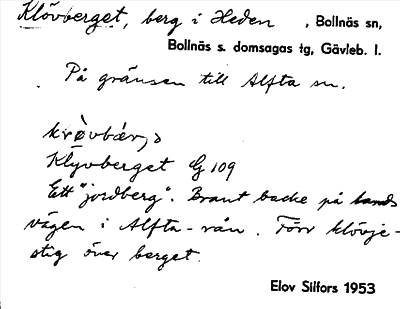 Klövberget, berg i Heden , Bollnäs sn,
Bollnäs s. domsagas tg, Gävleb. l.
På gränsen till Alfta sn.
Klyvberget G 109
Ett "jordberg". Brant backe på lands
vägen i Alfta-rån. Förr klövje-
stig över berget.
Elov Silfors 1953